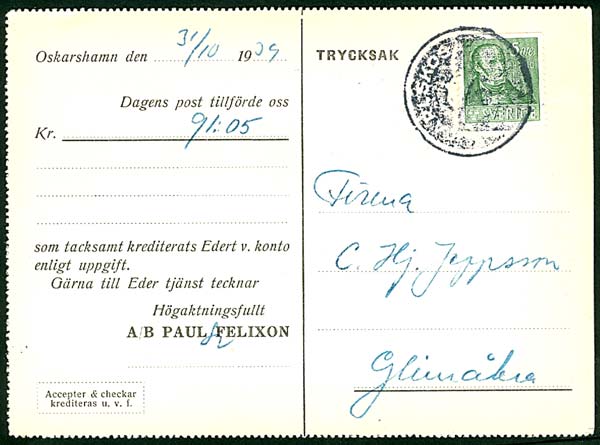 Oskarshamn den 31/10 1939
Dagens post tillförde oss
Kr. 91:05
som tacksamt krediterats Edert v. konto
enligt uppgift.
Gärna till Eder tjänst tecknar
Högaktningsfullt
A/B PAUL FELIXON
Accepter & checkar
krediteras u. v. f.
TRYCKSAK
SVERIGE
Firma
C. Hj. Jeppsson
Glimåkra